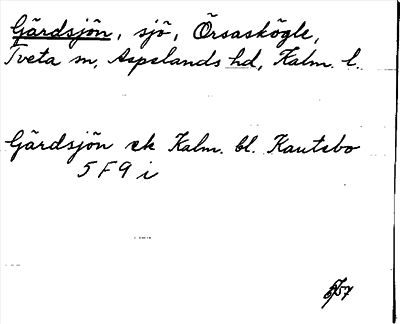 Gärdsjön, sjö, Örsaskögle,
Tveta sn, Aspelands hd, Kalm. l.
Gärdsjön ek Kalm. bl. Kautebo
5 F 9 i
57